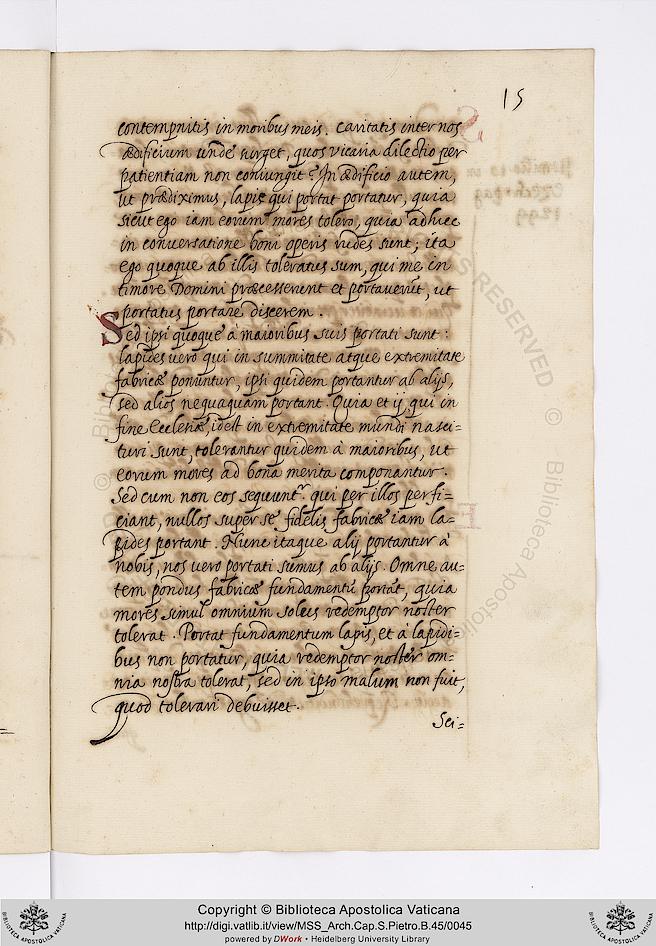 15
contempnitis in moribus meis. Caritatis inter nos
ædificium unde surget, quos vicaria dilectio per
patientiam non coniungit? In ædificio autem,
ut prædiximus, lapis qui portat portatur, quia
sicut ego iam eorum mores tolero, quia adhuc
in conversatione boni operis rudes sunt; ita
ego quoque ab illis toleratus sum, qui me in
timore Domini præcesserunt et portaverūt, ut
portatus portare discerem.
Sed ipsi quoque à maioribus suis portati sunt:
lapides vero qui in summitate atque extremitate
fabricæ ponuntur, ipsi quidem portantur ab alijs,
sed alios nequaquam portant. Quia et ij qui in
fine Ecclesiæ, idest in extremitate mundi nasci=
turi sunt, tolerantur quidem à maioribus, ut
eorum mores ad bona merita componantur.
Sed cum non eos sequunt.ʳ qui per illos perfi=
ciant, nullos super se fidelis fabricæ iam la=
pides portant. Nunc itaque alij portantur à
nobis, nos vero portati sumus ab alijs. Omne au=
tem pondus fabricæ fundamentū portat, quia
mores simul omnium solus redemptor noster
tolerat. Portat fundamentum lapis, et à lapidi=
bus non portatur, quia redemptor noster om=
nia nostra tolerat, sed in ipso malum non fuit,
quod tolerari debuisset.
Sci=
Copyright © Biblioteca Apostolica Vaticana
http://digi.vatlib.it/view/MSS_Arch.Cap.S.Pietro.B.45/0045
powered by DWork • Heidelberg University Library